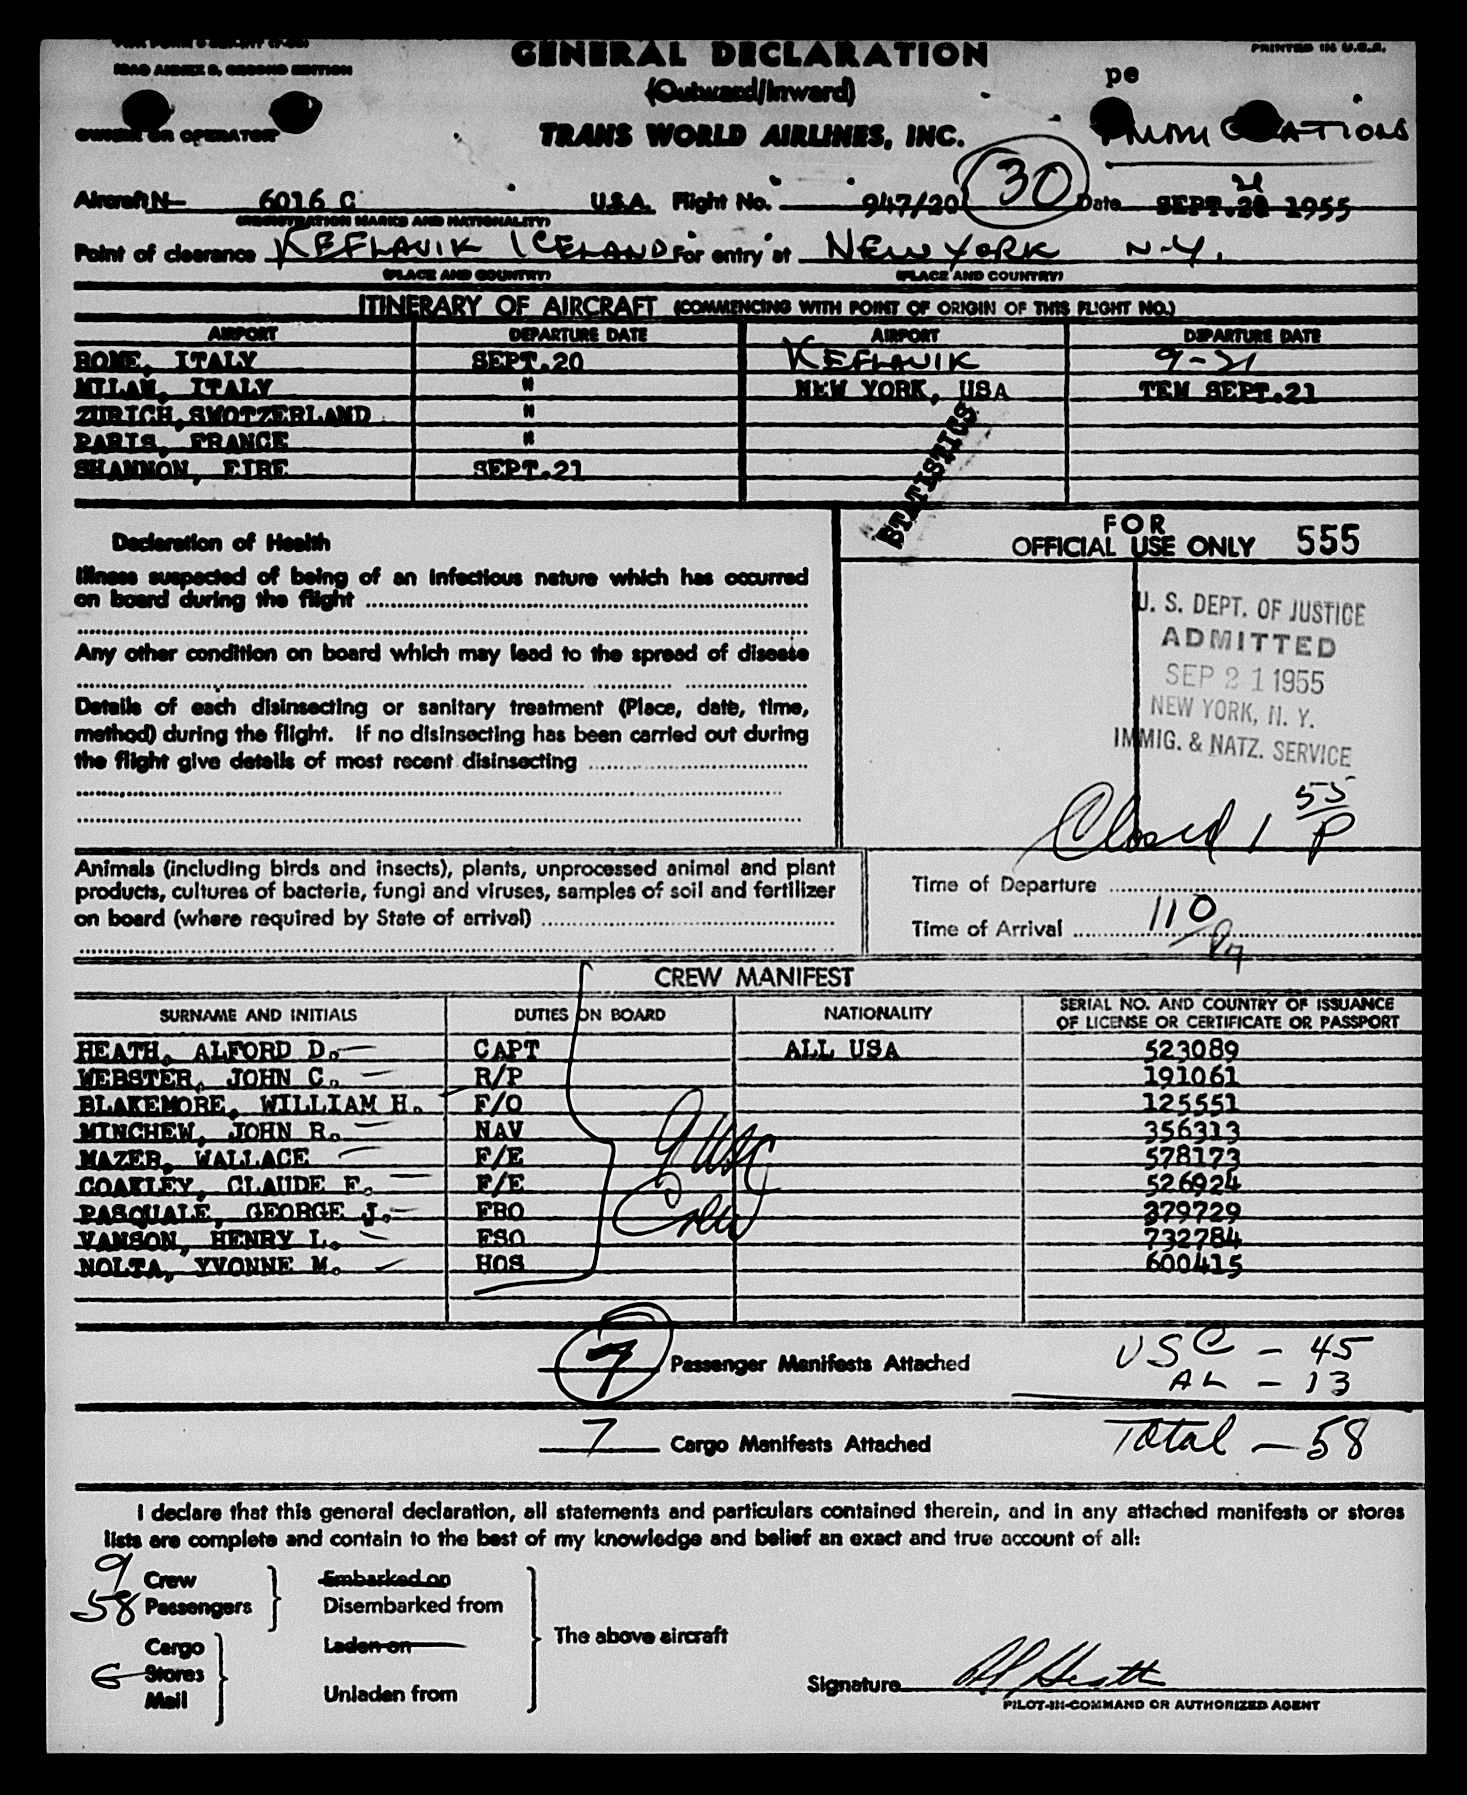 ICAO ANNEX 9, SECOND EDITION
PRINTED IN U.S.A.
GENERAL DECLARATION
(Outward/Inward)
pe
OWNER OR OPERATOR
TRANS WORLD AIRLINES, INC.
Aircraft N- 6016 C U.S.A. Flight No. 947/20 30 Date SEPT. 21 1955
(REGISTRATION MARKS AND NATIONALITY)
Point of clearance KEFLAVIK ICELAND For entry at NEW YORK N.Y.
(PLACE AND COUNTRY) (PLACE AND COUNTRY)
ITINERARY OF AIRCRAFT (COMMENCING WITH POINT OF ORIGIN OF THIS FLIGHT NO.)
AIRPORT DEPARTURE DATE AIRPORT DEPARTURE DATE
ROME, ITALY SEPT.20 KEFLAVIK 9-21
MILAN, ITALY " NEW YORK, USA TEM SEPT.21
ZURICH,SWOTZERLAND "
PARIS, FRANCE "
SHANNON, EIRE SEPT.21
STATISTICS
FOR
OFFICIAL USE ONLY 555
Declaration of Health
Illness suspected of being of an infectious nature which has occurred
on board during the flight
Any other condition on board which may lead to the spread of disease
Details of each disinsecting or sanitary treatment (Place, date, time,
method) during the flight. If no disinsecting has been carried out during
the flight give details of most recent disinsecting
U. S. DEPT. OF JUSTICE
ADMITTED
SEP 21 1955
NEW YORK, N. Y.
IMMIG. & NATZ. SERVICE
Closed 1 55 P
Animals (including birds and insects), plants, unprocessed animal and plant
products, cultures of bacteria, fungi and viruses, samples of soil and fertilizer
on board (where required by State of arrival)
Time of Departure
Time of Arrival 110 PM
CREW MANIFEST
SURNAME AND INITIALS DUTIES ON BOARD NATIONALITY SERIAL NO. AND COUNTRY OF ISSUANCE
OF LICENSE OR CERTIFICATE OR PASSPORT
HEATH, ALFORD D. CAPT ALL USA 523089
WEBSTER, JOHN C. R/P 191061
BLAKEMORE, WILLIAM H. F/O 125551
MINCHEW, JOHN R. NAV 356313
MAZER, WALLACE F/E 578173
COAKLEY, CLAUDE F. F/E 526924
PASQUALE, GEORGE J. FRO 379729
VANSON, HENRY L. FSO 732784
NOLTA, YVONNE M. HOS 600415
9 USC
Crew
7 Passenger Manifests Attached
USC - 45
AL - 13
7 Cargo Manifests Attached
Total - 58
I declare that this general declaration, all statements and particulars contained therein, and in any attached manifests or stores
lists are complete and contain to the best of my knowledge and belief an exact and true account of all:
9 Crew Embarked on
58 Passengers Disembarked from
The above aircraft
Cargo Laden on
Stores
Mail Unladen from
Signature
PILOT-IN-COMMAND OR AUTHORIZED AGENT